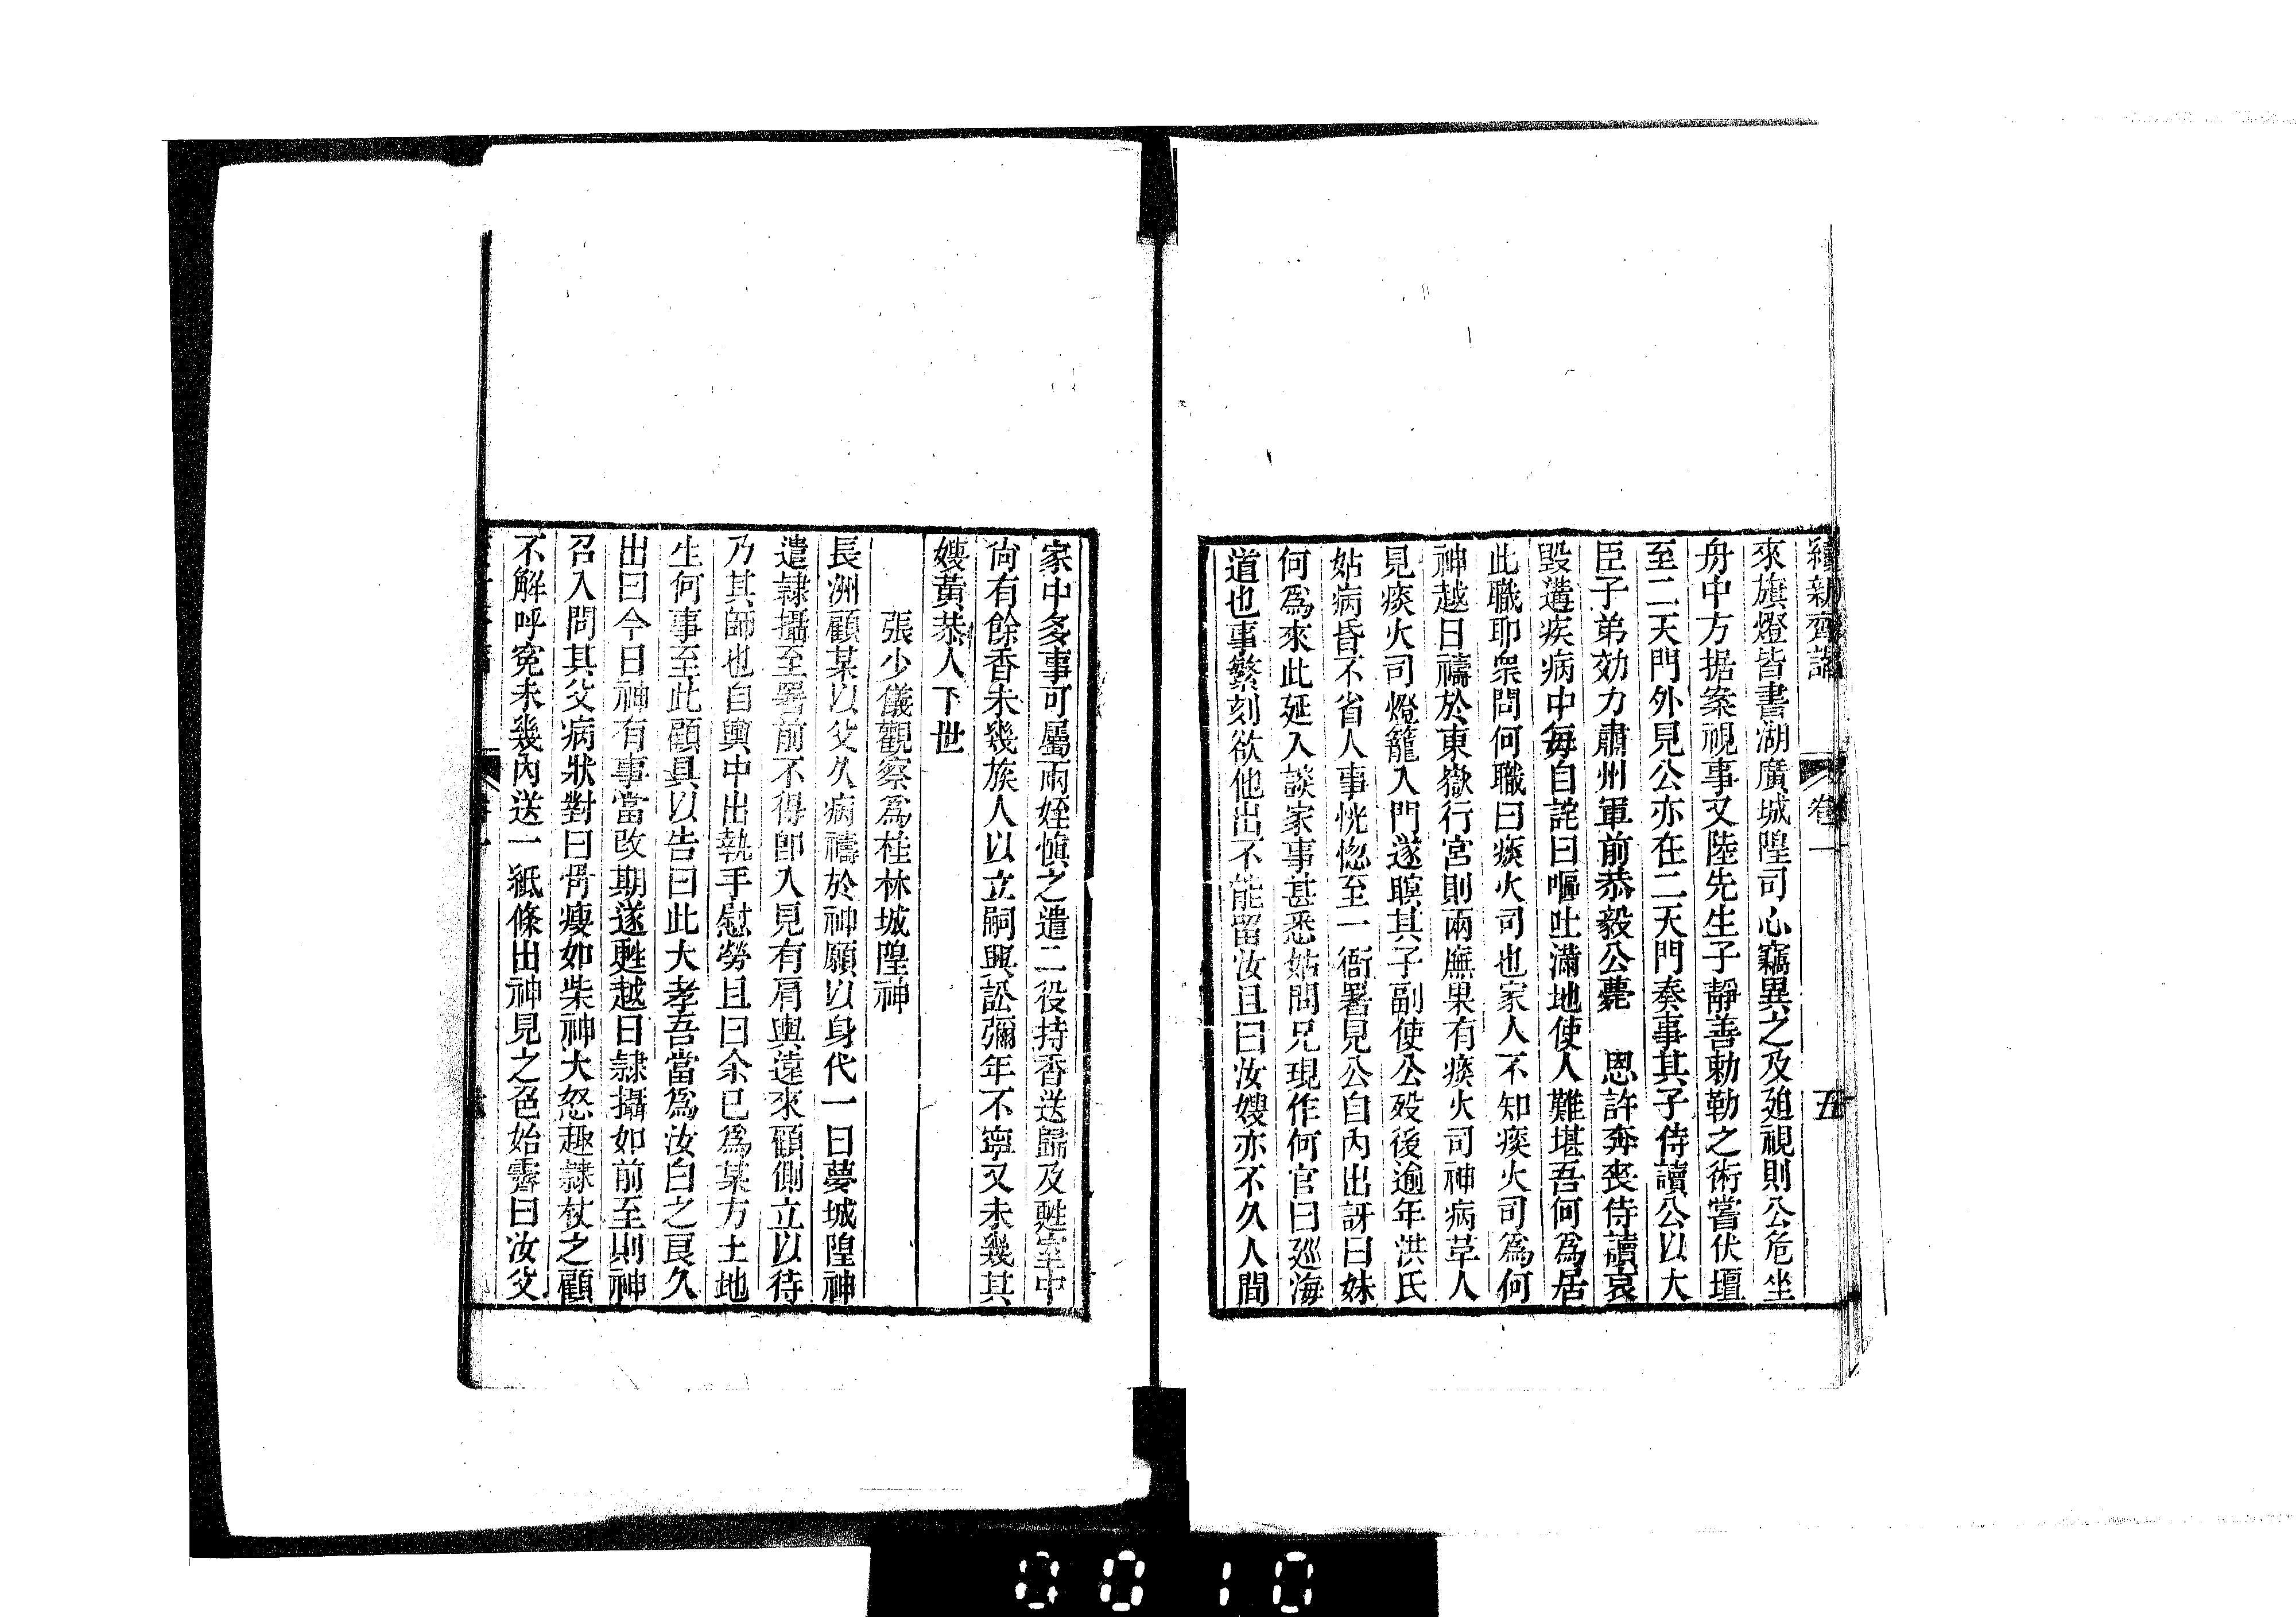 續新齊諧　卷一　五
來旗燈皆書湖廣城隍司心竊異之及廹視則公危坐
舟中方据案視事又陸先生子靜善勅勒之術嘗伏壇
至二天門外見公亦在二天門奏事其子侍讀公以大
臣子弟効力肅州軍前恭毅公薨　恩許奔喪侍讀哀
毀遘疾病中每自詫曰嘔吐滿地使人難堪吾何爲居
此職耶衆問何職曰痰火司也家人不知痰火司爲何
神越日禱於東嶽行宮則兩廡果有痰火司神病革人
見痰火司燈籠入門遂暝其子副使公歿後逾年洪氏
姑病昏不省人事恍惚至一衙署見公自內出訝曰妹
何爲來此延入談家事甚悉姑問兄現作何官曰廵海
道也事繁刻欲他出不能留汝且曰汝嫂亦不久人間
家中多事可屬兩姪愼之遣二役持香送歸及甦室中
尙有餘香未幾族人以立嗣興訟彌年不寧又未幾其
嫂黃恭人下世
張少儀觀察爲桂林城隍神
長洲顧某以父久病禱於神願以身代一日夢城隍神
遣隷攝至署前不得卽入見有肩輿遠來顧側立以待
乃其師也自輿中出執手慰勞且曰余已爲某方土地
生何事至此顧具以告曰此大孝吾當爲汝白之良久
出曰今日神有事當改期遂甦越日隷攝如前至則神
召入問其父病狀對曰骨瘦如柴神大怒趣隷杖之顧
不解呼寃未幾內送一紙條出神見之色始霽曰汝父